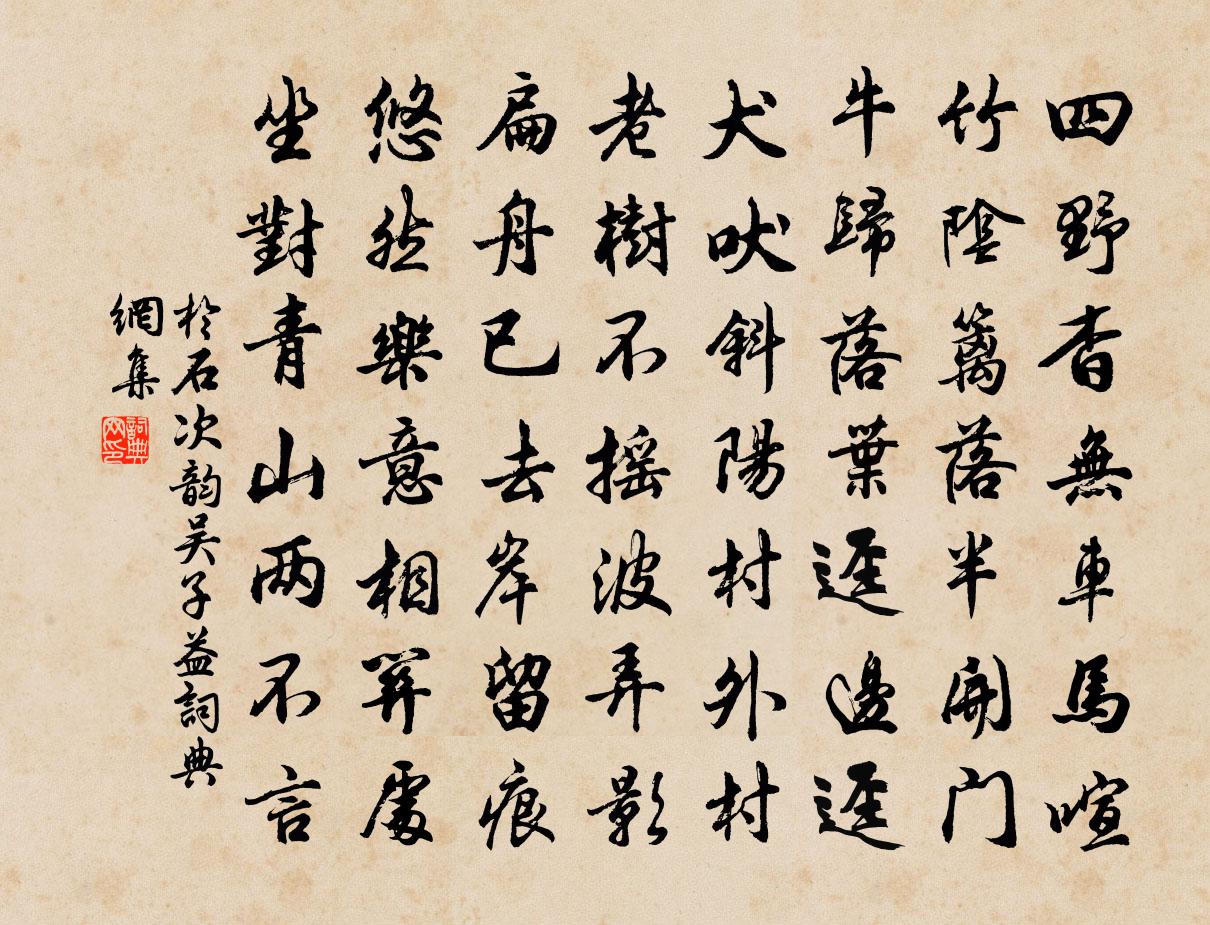 四野杳無車馬喧
竹陰籬落半開門
牛歸落葉逕邊逕
犬吠斜陽村外村
老樹不搖波弄影
扁舟已去岸留痕
悠然樂意相關處
坐對青山两不言
於石次韵吴子益詞典
網集
詞典网印